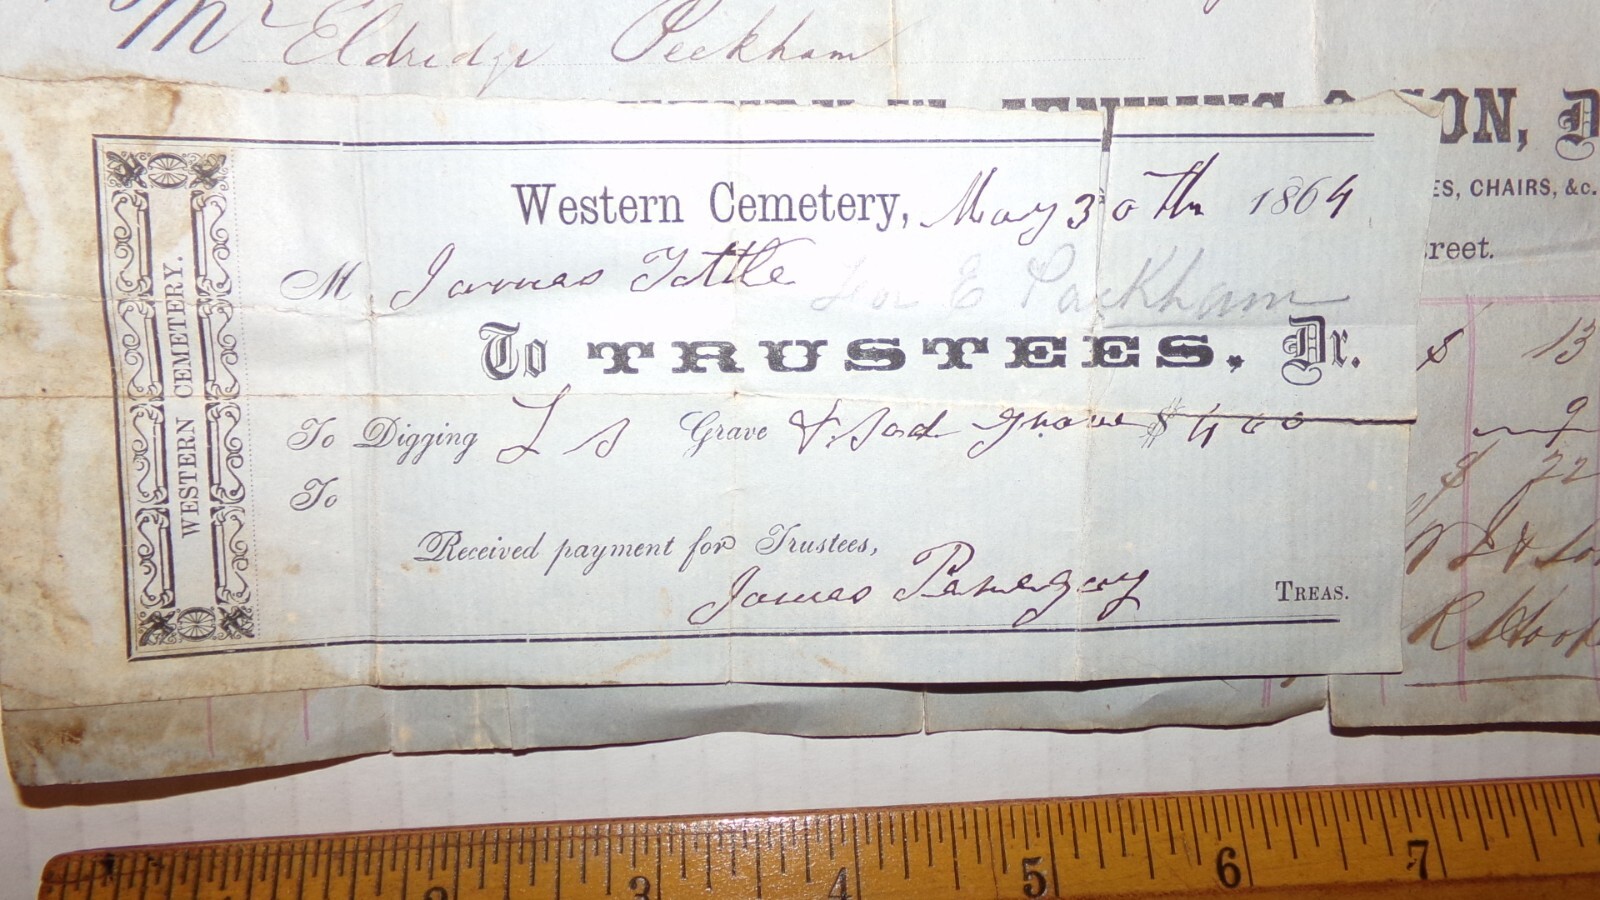 Mr Eldridge Peckham
JENNINGS & SON, D
ES, CHAIRS, &c.
reet.
WESTERN CEMETERY.
Western Cemetery, May 30th 1864
M James Tottle for E Packham
To TRUSTEES, Dr.
To Digging L S Grave & Sod Grave $ 4 00
To
Received payment for Trustees,
James TREAS.
$ 13
9
$ 22
2 3 4 5 6 7